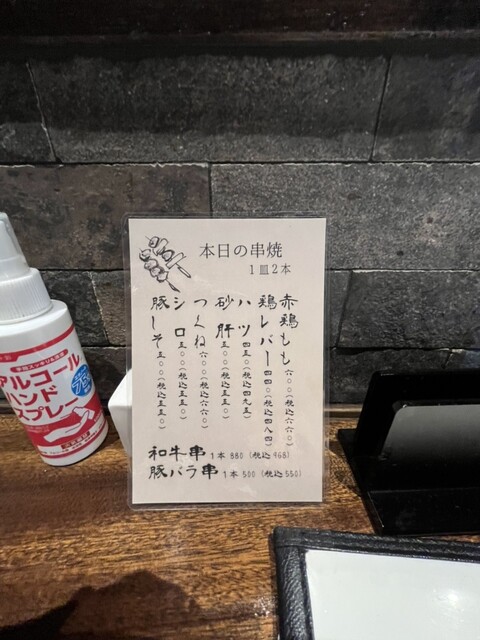 本日の串焼
1皿2本
赤鶏もも 六〇〇(税込六六〇)
鶏レバー 四四〇(税込四八四)
ハツ 四五〇(税込四九五)
砂肝 五〇〇(税込五五〇)
つくね 六〇〇(税込六六〇)
シロ 五〇〇(税込五五〇)
豚しそ 五〇〇(税込五五〇)
和牛串 1本 880 (税込 968)
豚バラ串 1本 500 (税込 550)
アルコール
ハンド
スプレー